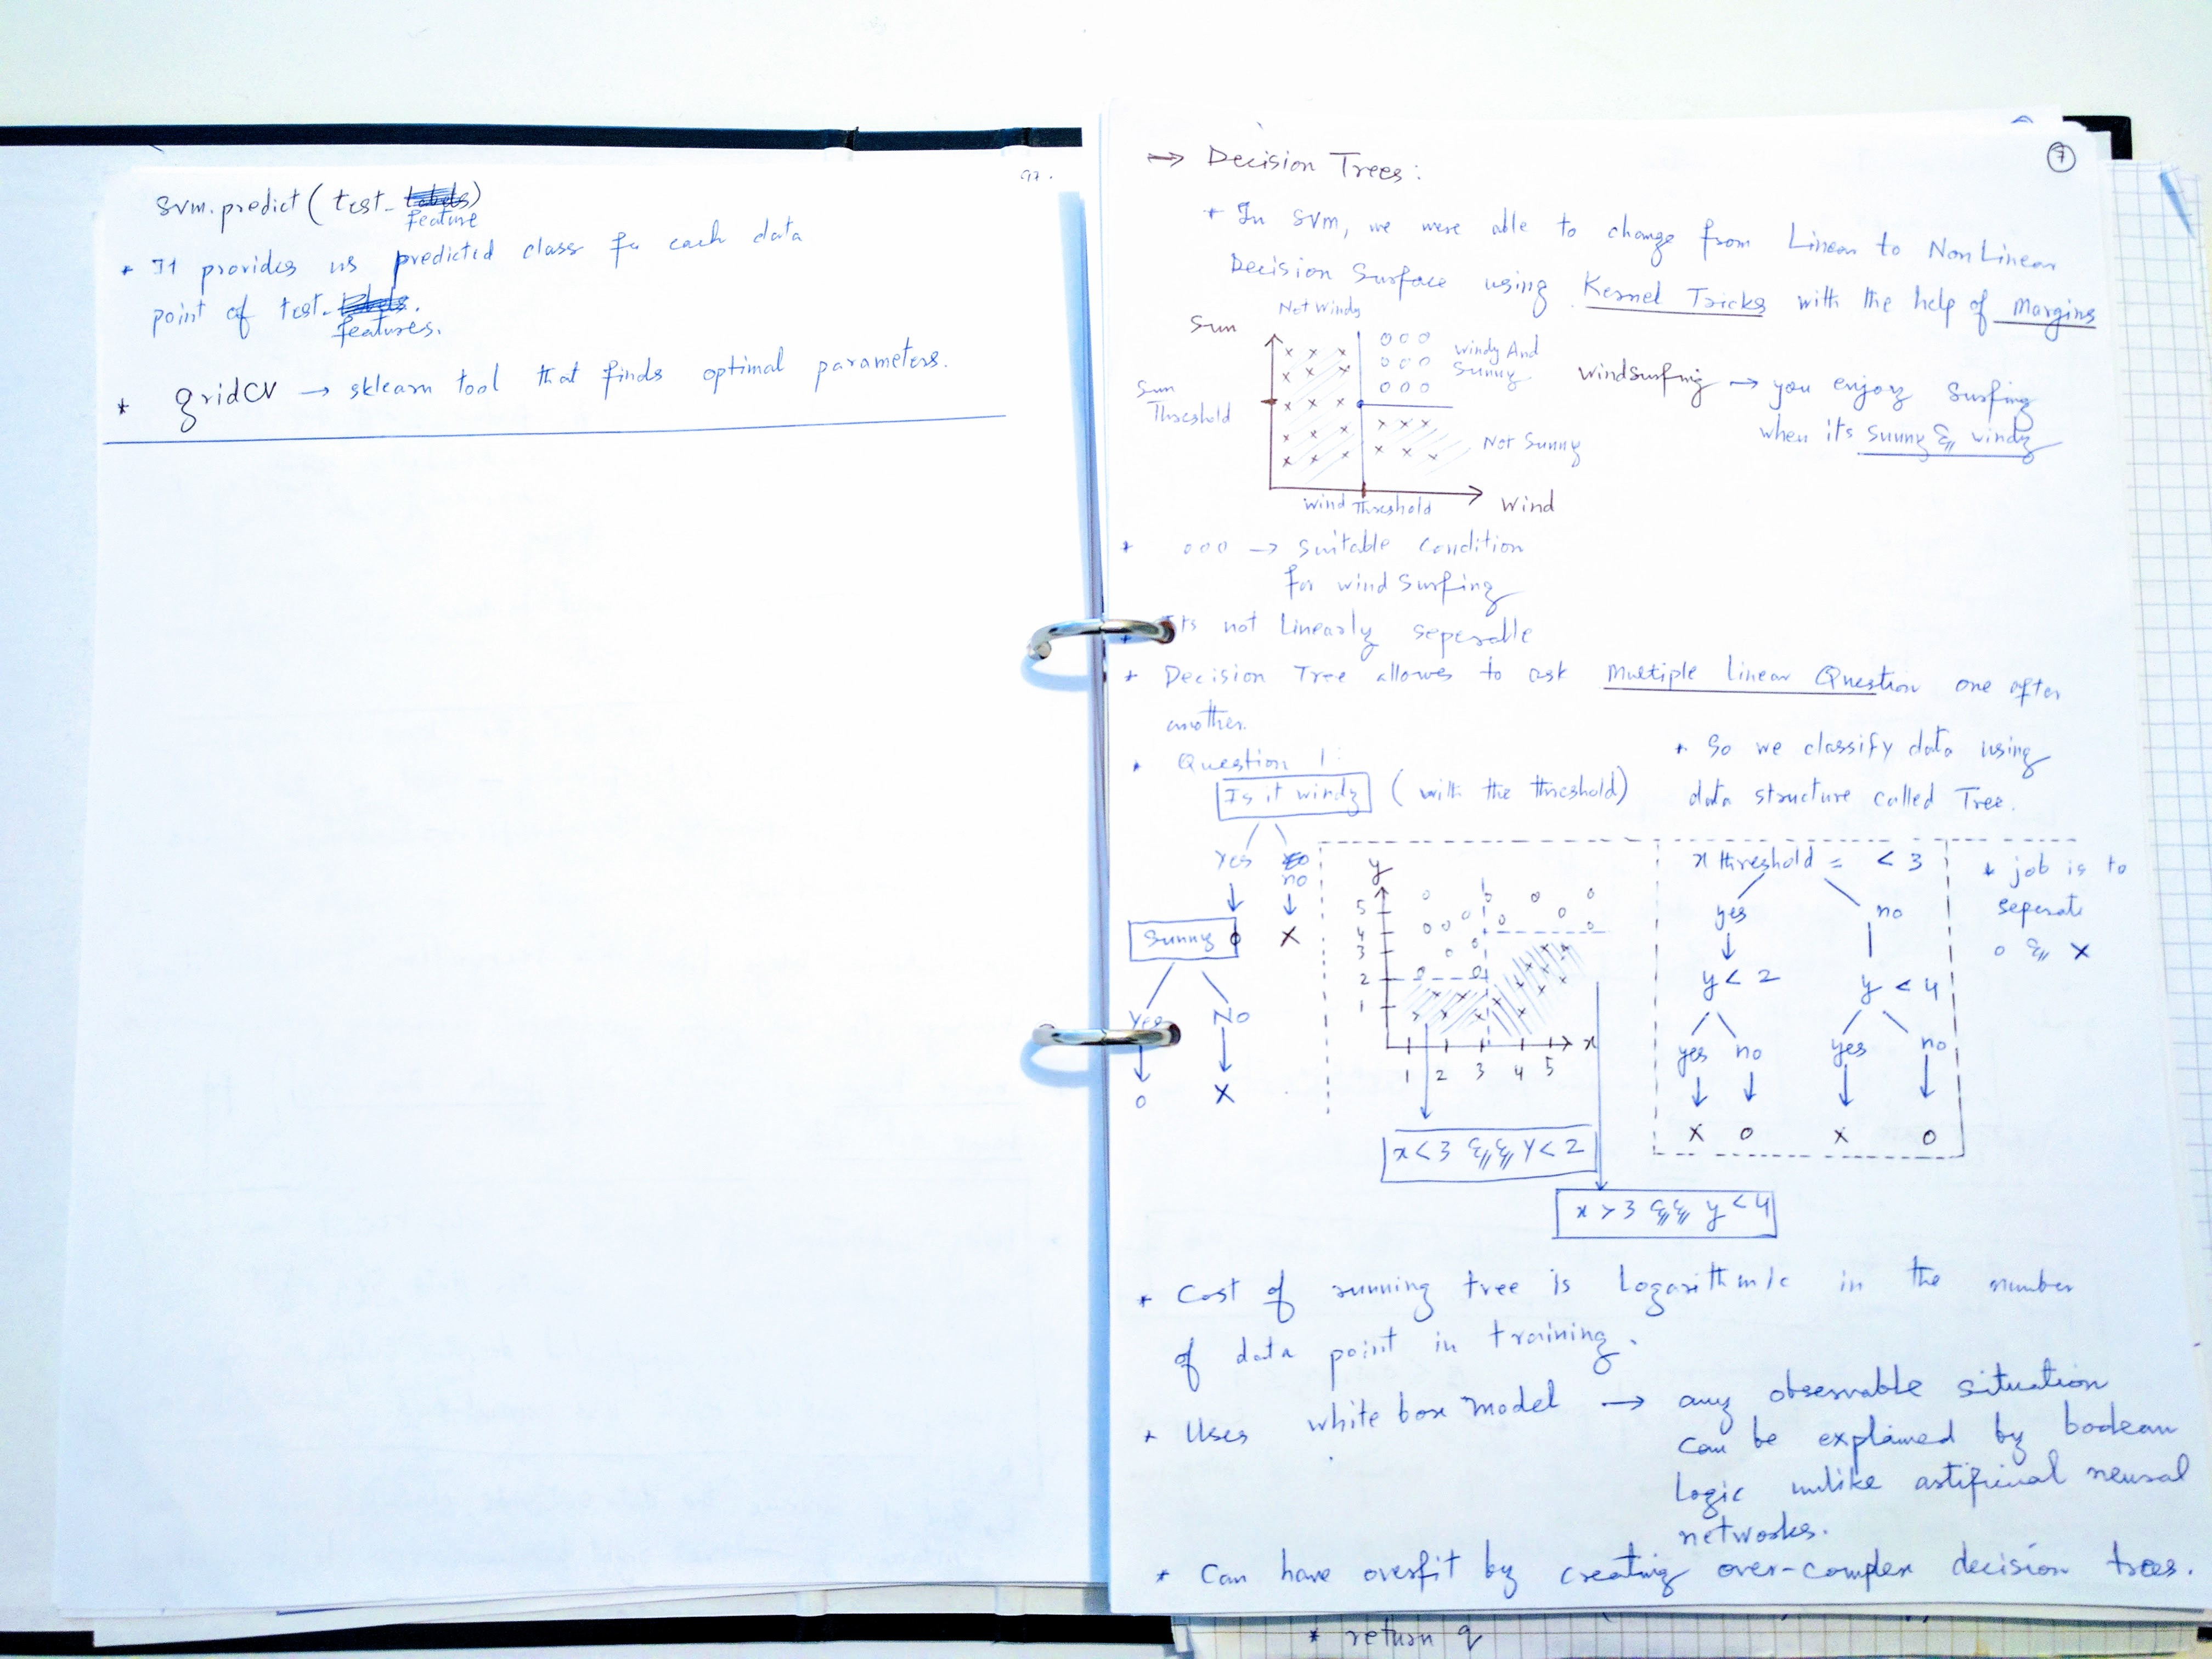 svm.predict(test_labels)
feature
* It provides us predicted class for each data
point of test_labels.
features.
* gridCV → sklearn tool that finds optimal parameters.
7
→ Decision Trees:
* In SVM, we were able to change from Linear to NonLinear
Decision Surface using Kernel Tricks with the help of Margins
Not Windy
Sun
Windy And
Sunny
Sun
Threshold
Not Sunny
Wind Threshold
Wind
Windsurfing → you enjoy Surfing
when its Sunny & windy
* ooo → Suitable Condition
For wind Surfing
* Its not Linearly seperable
* Decision Tree allowes to ask Multiple Linear Question one after
another.
* Question 1:
Is it windy (with the threshold)
* So we classify data using
data structure called Tree.
Yes no
Sunny o X
Yes No
o X
y
5
4
3
2
1
x
1 2 3 4 5
x<3 && Y<2
x>3 && y<4
x threshold = < 3
yes no
y<2 y<4
yes no yes no
X o X o
* job is to
seperate
o & X
* Cost of running tree is Logarithmic in the number
of data point in training.
* Uses white box model → any observable situation
can be explained by boolean
Logic unlike artificial neural
networks.
* Can have overfit by creating over-complex decision trees.
* return q